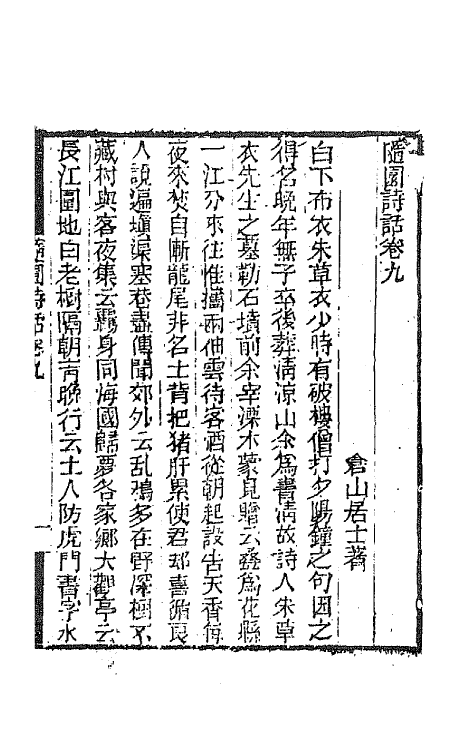 隨園詩話卷九
倉山居士著
白下布衣朱草衣少時有破樓僧打夕陽鐘之句因之
得名晚年無子卒後葬清涼山余為書清故詩人朱草
衣先生之墓勒石墳前余宰溧水蒙見贈云叠為花縣
一江分來往惟攜兩袖雲待客酒從朝起設告天香每
夜來焚自慚龍尾非名士背把猪肝累使君却喜循良
人說遍填渠塞巷盡傳聞郊外云乱鴉多在野深樹不
藏村與客夜集云羈身同海國歸夢各家鄉大觀亭云
長江圍地白老樹隔朝青晚行云土人防虎門書字水
隨園詩話卷九
一